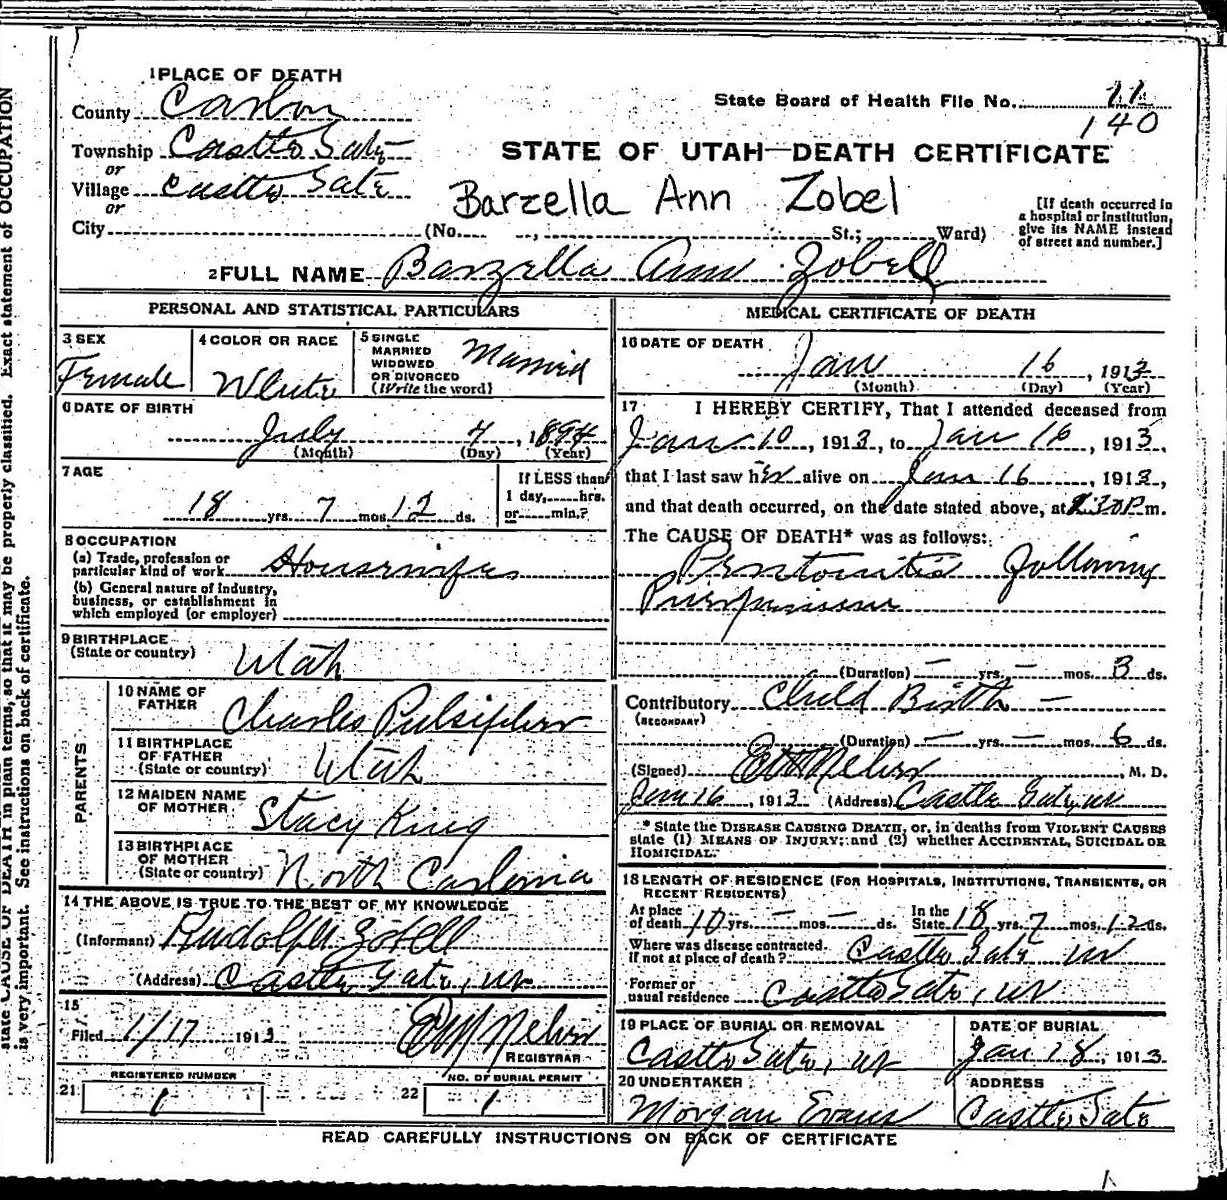 1 PLACE OF DEATH
County Carbon
State Board of Health File No. 11
140
Township Castle Gate
or
Village Castle Gate
or
City
STATE OF UTAH—DEATH CERTIFICATE
Barzella Ann Zobel
(No. , St.; Ward)
[If death occurred in
a hospital or institution,
give its NAME instead
of street and number.]
2 FULL NAME Barzella Ann Zobell
PERSONAL AND STATISTICAL PARTICULARS
3 SEX
Female
4 COLOR OR RACE
White
5 SINGLE
MARRIED
WIDOWED
OR DIVORCED
(Write the word)
Married
6 DATE OF BIRTH
July 4, 1894
(Month) (Day) (Year)
7 AGE
18 yrs. 7 mos. 12 ds.
If LESS than
1 day, hrs.
or min.?
8 OCCUPATION
(a) Trade, profession or
particular kind of work Housewife
(b) General nature of industry,
business, or establishment in
which employed (or employer)
9 BIRTHPLACE
(State or country) Utah
PARENTS
10 NAME OF
FATHER Charles Pulsipher
11 BIRTHPLACE
OF FATHER
(State or country) Utah
12 MAIDEN NAME
OF MOTHER Stacy King
13 BIRTHPLACE
OF MOTHER
(State or country) North Carlonia
14 THE ABOVE IS TRUE TO THE BEST OF MY KNOWLEDGE
(Informant) Rudolph Zobell
(Address) Castle Gate, Ut
15
Filed 1/17 1913
REGISTRAR
REGISTERED NUMBER
21 1
NO. OF BURIAL PERMIT
22 1
MEDICAL CERTIFICATE OF DEATH
16 DATE OF DEATH
Jan 16, 1913
(Month) (Day) (Year)
17 I HEREBY CERTIFY, That I attended deceased from
Jan 10, 1913, to Jan 16, 1913,
that I last saw her alive on Jan 16, 1913,
and that death occurred, on the date stated above, at 30P m.
The CAUSE OF DEATH* was as follows:
Peritonitis Following
(Duration) — yrs. — mos. 3 ds.
Contributory Child Birth —
(SECONDARY)
(Duration) — yrs. — mos. 6 ds.
(Signed) , M. D.
Jan 16, 1913 (Address) Castle Gate, Ut
* State the DISEASE CAUSING DEATH, or, in deaths from VIOLENT CAUSES
state (1) MEANS OF INJURY; and (2) whether ACCIDENTAL, SUICIDAL OR
HOMICIDAL.
18 LENGTH OF RESIDENCE (FOR HOSPITALS, INSTITUTIONS, TRANSIENTS, OR
RECENT RESIDENTS)
At place
of death 10 yrs. — mos. — ds.
In the
State 18 yrs. 7 mos. 12 ds.
Where was disease contracted.
If not at place of death? Castle Gate Ut
Former or
usual residence Castle Gate, Ut
19 PLACE OF BURIAL OR REMOVAL
Castle Gate, Ut
DATE OF BURIAL
Jan 18, 1913
20 UNDERTAKER
Morgan Evans
ADDRESS
Castle Gate
READ CAREFULLY INSTRUCTIONS ON BACK OF CERTIFICATE
state CAUSE OF DEATH in plain terms, so that it may be properly classified. Exact statement of OCCUPATION
is very important. See instructions on back of certificate.